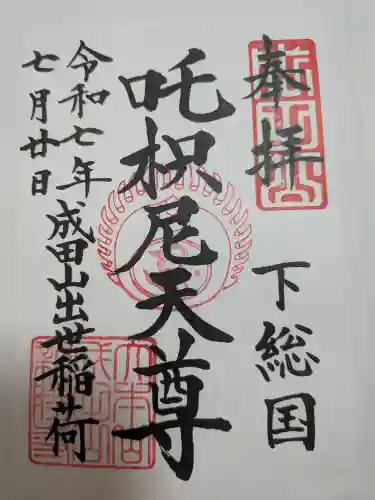 奉拝
下総国
吒枳尼天尊
成田山出世稲荷
令和七年
七月廿日